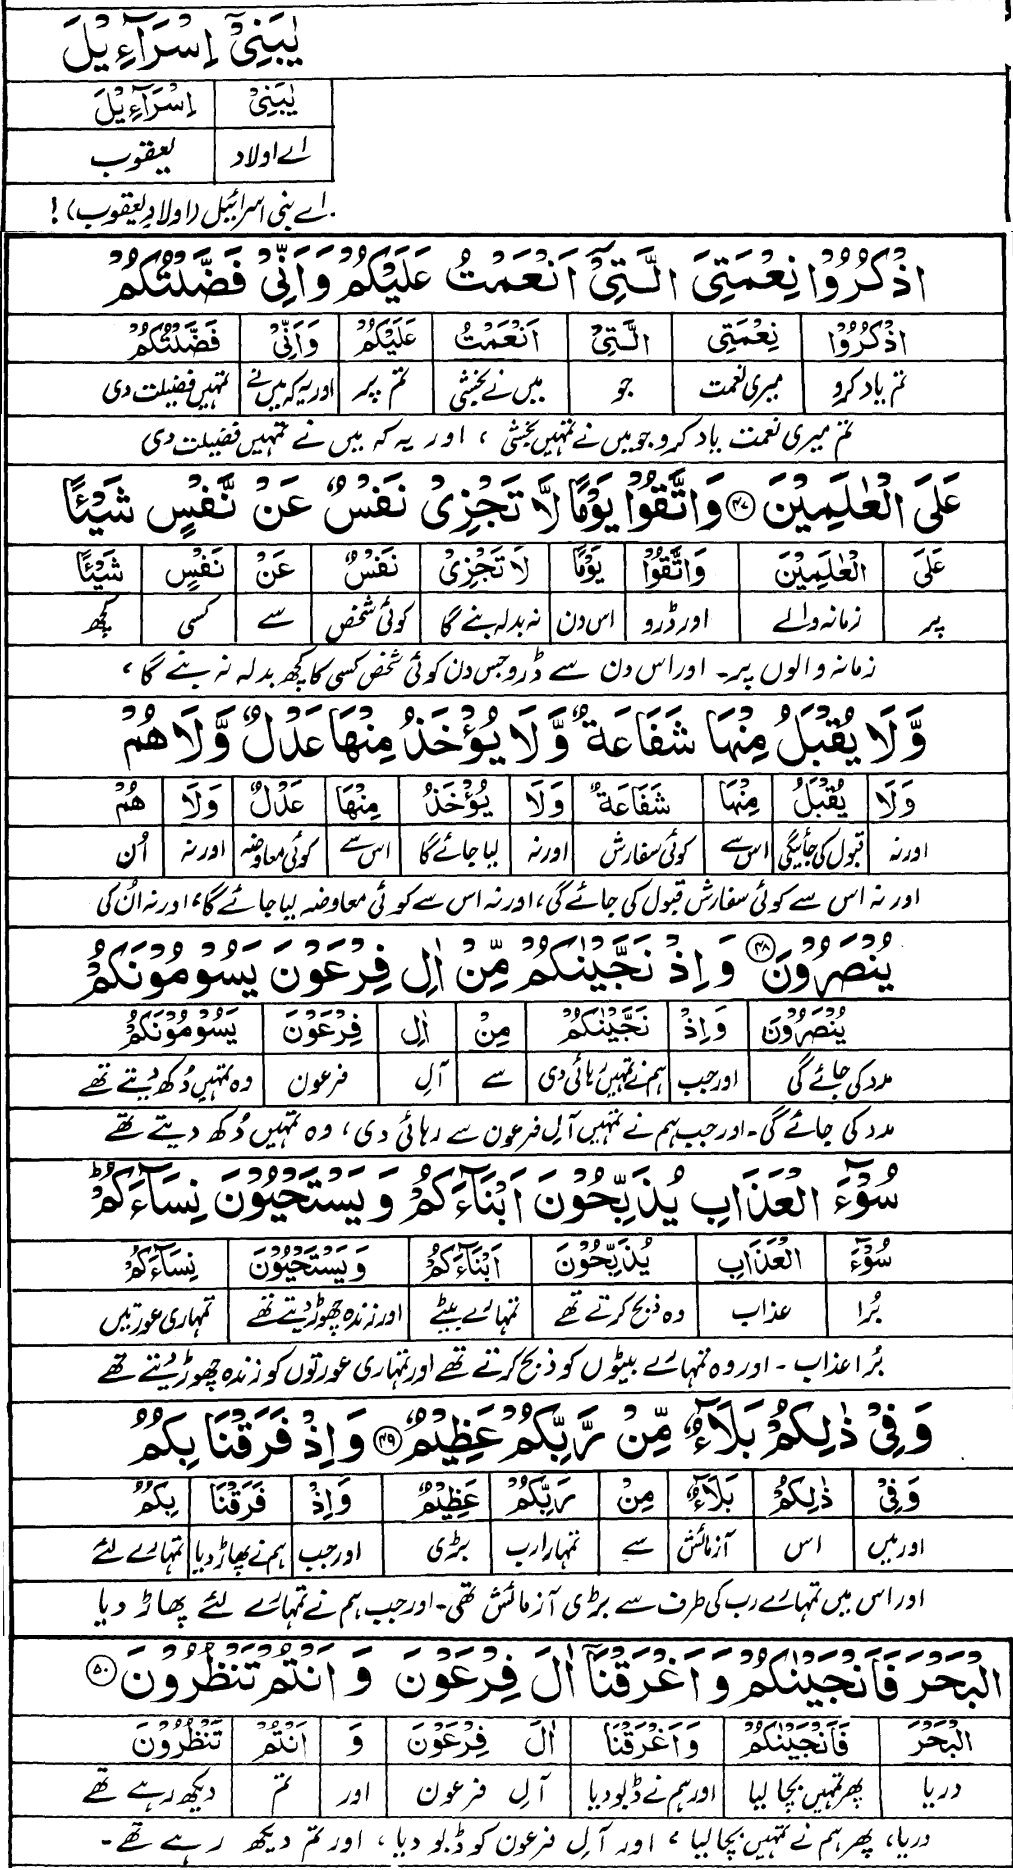 يٰبَنِيْٓ اِسْرَآءِيْلَ
يٰبَنِيْٓ اِسْرَآءِيْلَ
اے اولاد یعقوب
اے بنی اسرائیل (اولادِ یعقوب)!
اذْكُرُوْا نِعْمَتِيَ الَّتِيْٓ اَنْعَمْتُ عَلَيْكُمْ وَاَنِّيْ فَضَّلْتُكُمْ
اذْكُرُوْا نِعْمَتِيَ الَّتِيْٓ اَنْعَمْتُ عَلَيْكُمْ وَاَنِّيْ فَضَّلْتُكُمْ
تم یاد کرو میری نعمت جو میں نے بخشی تم پر اور یہ کہ میں نے تمہیں فضیلت دی
تم میری نعمت یاد کرو جو میں نے تمہیں بخشی ، اور یہ کہ میں نے تمہیں فضیلت دی
عَلَى الْعٰلَمِيْنَ ۴۷ وَاتَّقُوْا يَوْمًا لَّا تَجْزِيْ نَفْسٌ عَنْ نَّفْسٍ شَيْـًٔا
عَلَى الْعٰلَمِيْنَ وَاتَّقُوْا يَوْمًا لَا تَجْزِيْ نَفْسٌ عَنْ نَفْسٍ شَيْـًٔا
پر زمانہ والے اور ڈرو اس دن نہ بدلہ بنے گا کوئی شخص سے کسی کچھ
زمانہ والوں پر۔ اور اس دن سے ڈرو جس دن کوئی شخص کسی کا کچھ بدلہ نہ بنے گا ،
وَّلَا يُقْبَلُ مِنْهَا شَفَاعَةٌ وَّلَا يُؤْخَذُ مِنْهَا عَدْلٌ وَّلَا هُمْ
وَلَا يُقْبَلُ مِنْهَا شَفَاعَةٌ وَلَا يُؤْخَذُ مِنْهَا عَدْلٌ وَلَا هُمْ
اور نہ قبول کی جائیگی اس سے کوئی سفارش اور نہ لیا جائے گا اس سے کوئی معاوضہ اور نہ اُن
اور نہ اس سے کوئی سفارش قبول کی جائے گی، اور نہ اس سے کوئی معاوضہ لیا جائے گا، اور نہ اُن کی
يُنْصَرُوْنَ ۴۸ وَاِذْ نَجَّيْنٰكُمْ مِّنْ اٰلِ فِرْعَوْنَ يَسُوْمُوْنَكُمْ
يُنْصَرُوْنَ وَاِذْ نَجَّيْنٰكُمْ مِنْ اٰلِ فِرْعَوْنَ يَسُوْمُوْنَكُمْ
مدد کی جائے گی اور جب ہم نے تمہیں رہائی دی سے آلِ فرعون وہ تمہیں دُکھ دیتے تھے
مدد کی جائے گی۔ اور جب ہم نے تمہیں آلِ فرعون سے رہائی دی ، وہ تمہیں دُکھ دیتے تھے
سُوْٓءَ الْعَذَابِ يُذَبِّحُوْنَ اَبْنَآءَكُمْ وَيَسْتَحْيُوْنَ نِسَآءَكُمْ ؕ
سُوْٓءَ الْعَذَابِ يُذَبِّحُوْنَ اَبْنَآءَكُمْ وَيَسْتَحْيُوْنَ نِسَآءَكُمْ
بُرا عذاب وہ ذبح کرتے تھے تمہارے بیٹے اور زندہ چھوڑ دیتے تھے تمہاری عورتیں
بُرا عذاب ۔ اور وہ تمہارے بیٹوں کو ذبح کرتے تھے اور تمہاری عورتوں کو زندہ چھوڑ دیتے تھے
وَفِيْ ذٰلِكُمْ بَلَآءٌ مِّنْ رَّبِّكُمْ عَظِيْمٌ ۴۹ وَاِذْ فَرَقْنَا بِكُمُ
وَفِيْ ذٰلِكُمْ بَلَآءٌ مِنْ رَبِّكُمْ عَظِيْمٌ وَاِذْ فَرَقْنَا بِكُمُ
اور میں اس آزمائش سے تمہارا رب بڑی اور جب ہم نے پھاڑ دیا تمہارے لئے
اور اس میں تمہارے رب کی طرف سے بڑی آزمائش تھی۔ اور جب ہم نے تمہارے لئے پھاڑ دیا
الْبَحْرَ فَاَنْجَيْنٰكُمْ وَاَغْرَقْنَآ اٰلَ فِرْعَوْنَ وَاَنْتُمْ تَنْظُرُوْنَ ۵۰
الْبَحْرَ فَاَنْجَيْنٰكُمْ وَاَغْرَقْنَا اٰلَ فِرْعَوْنَ وَ اَنْتُمْ تَنْظُرُوْنَ
دریا پھر تمہیں بچا لیا اور ہم نے ڈبو دیا آلِ فرعون اور تم دیکھ رہے تھے
دریا، پھر ہم نے تمہیں بچا لیا ، اور آلِ فرعون کو ڈبو دیا ، اور تم دیکھ رہے تھے۔